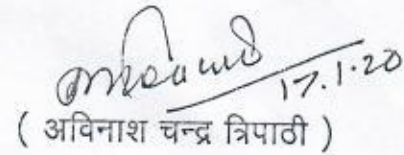 17.1.20
( अविनाश चन्द्र त्रिपाठी )